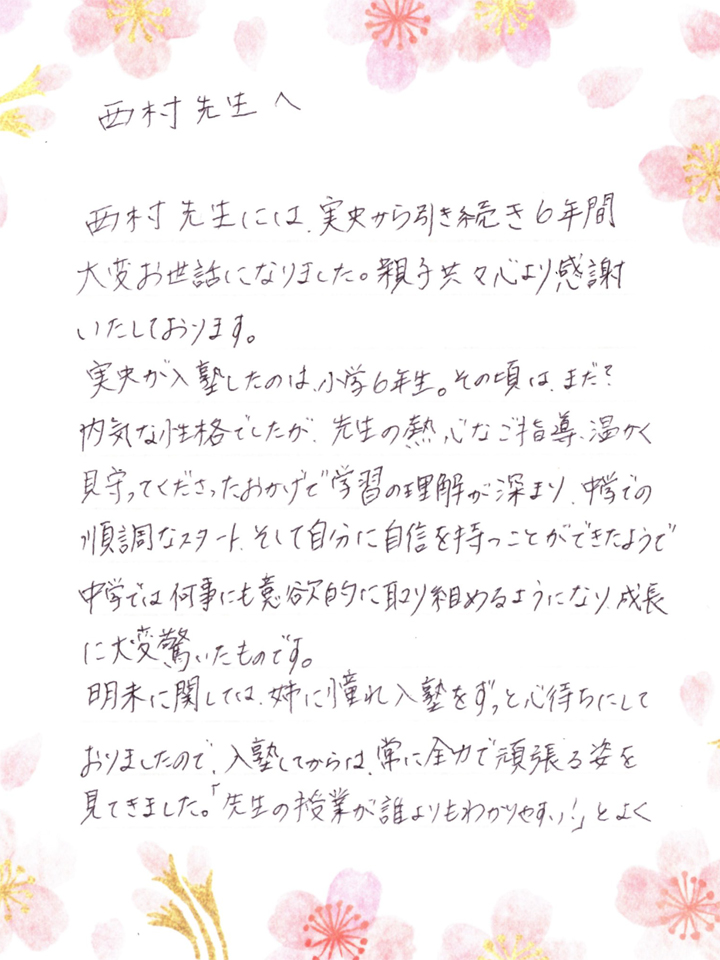 西村先生へ
西村先生には、実央から引き続き6年間
大変お世話になりました。親子共々心より感謝
いたしております。
実央が入塾したのは、小学6年生。その頃は、まだ?
内気な性格でしたが、先生の熱心なご指導、温かく
見守ってくださったおかげで学習の理解が深まり、中学での
順調なスタート、そして自分に自信を持つことができたようで
中学では何事にも意欲的に取り組めるようになり、成長
に大変驚いたものです。
明未に関しては、姉に憧れ入塾をずっと心待ちにして
おりましたので、入塾してからは、常に全力で頑張る姿を
見てきました。「先生の授業が誰よりもわかりやすい!」とよく